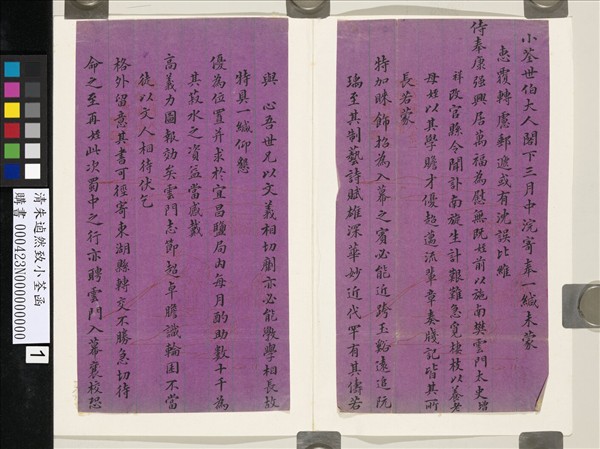 小荃世伯大人閣下三月中浣寄奉一緘未蒙
惠覆轉慮郵遞或有沈誤比維
侍奉康强興居萬福為慰無阮姪前以施南樊雲門太史增
祥改官縣令開訃南旋生計艱難急覓棲枝以養老
母姪以其學贍才優超邁流輩章奏牋記皆其所
長若蒙
特加睞飾招為入幕之賓必能近跨玉谿遠追阮
瑀至其制藝詩賦雄深華妙近代罕有其儔若
與 心吾世兄以文義相切劘亦必能斆學相長故
特具一緘仰懇
優為位置并求於宜昌鹽局內每月酌助數十千為
其菽水之資益當感戴
高義力圖報効矣雲門志節超卓瞻識輪囷不當
徒以文人相待伏乞
格外留意其書可徑寄東湖縣轉交不勝急切待
命之至再姪此次蜀中之行亦聘雲門入幕襄校恐
清朱逌然致小荃函
購書 000423N000000000
1